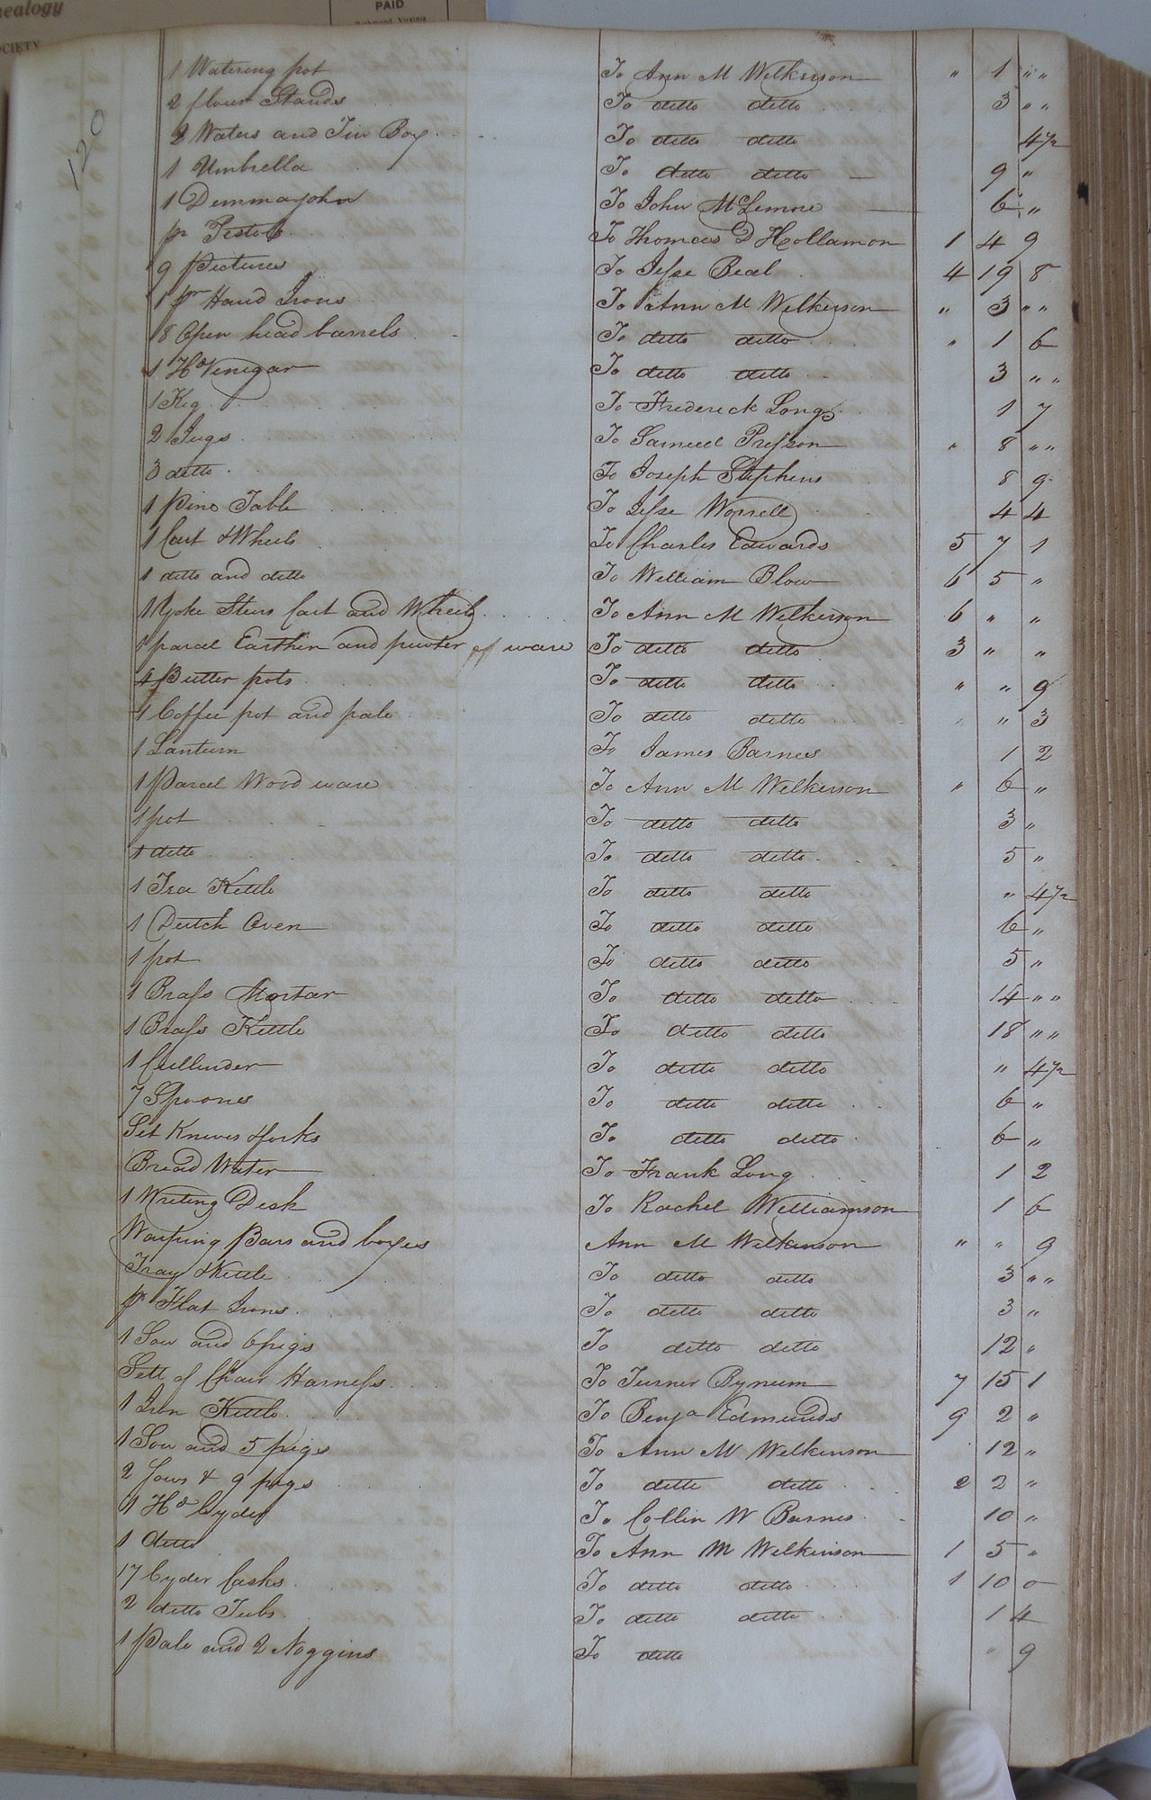 nealogy
OCIETY
PAID
Richmond, Virginia
120
1 Watering pot To Ann M Wilkinson " 1 " "
2 flour Stands To ditto ditto 3 " "
2 Waters and Tin Box To ditto ditto 4½
1 Umbrella To ditto ditto 9 "
1 Demmajohn To John McLemore 6 "
pr Pistols To Thomas D Hollamon 1 4 9
9 Pictures To Jesse Beal 4 19 8
1 pr Hand Irons To Ann M Wilkinson " 3 " "
8 Open head barrels To ditto ditto " 1 6
1 Hd Vinegar To ditto ditto 3 " "
1 Keg To Frederick Long 1 7
2 Jugs To Samuel Presson " 8 " "
3 ditto To Joseph Stephens 8 9
1 Pine Table To Jesse Worrell 4 4
1 Cart & Wheels To Charles Edwards 5 7 1
1 ditto and ditto To William Blow 6 5 "
1 Yoke Steers Cart and Wheels To Ann M Wilkinson 6 " "
1 parcel Earthen and pewter of ware To ditto ditto 3 " "
4 Butter pots To ditto ditto " " 9
1 Coffee pot and pale To ditto ditto " " 3
1 Lanturn To James Barnes 1 2
1 Parcel Wood ware To Ann M Wilkinson " 6 "
1 pot To ditto ditto 3 "
1 ditto To ditto ditto 5 "
1 Tea Kettle To ditto ditto " 4½
1 Dutch Oven To ditto ditto 6 "
1 pot To ditto ditto 5 "
1 Brass Mortar To ditto ditto 14 " "
1 Brass Kettle To ditto ditto 18 " "
1 Cullender To ditto ditto " 4½
7 Spoones To ditto ditto 6 "
Set Knives & forks To ditto ditto 6 "
Bread Water To Frank Long 1 2
1 Writing Desk To Rachel Williamson 1 6
Warping Bars and boxes Ann M Wilkinson " " 9
Tray & Kettle To ditto ditto 3 " "
pr Flat Irons To ditto ditto 3 "
1 Sow and 6 pigs To ditto ditto 12 "
Sett of Chair Harness To Turner Bynum 7 15 1
1 Iron Kettle To Benja Edmunds 9 2 "
1 Sow and 5 pigs To Ann M Wilkinson 12 "
2 Sows & 9 pigs To ditto ditto 2 2 "
1 Hd Cyder To Collin W Barnes 10 "
1 ditto To Ann M Wilkinson 1 5 "
17 Cyder Casks To ditto ditto 1 10 0
2 ditto Tubs To ditto ditto 1 4
1 Pale and 2 Noggins To ditto " 9